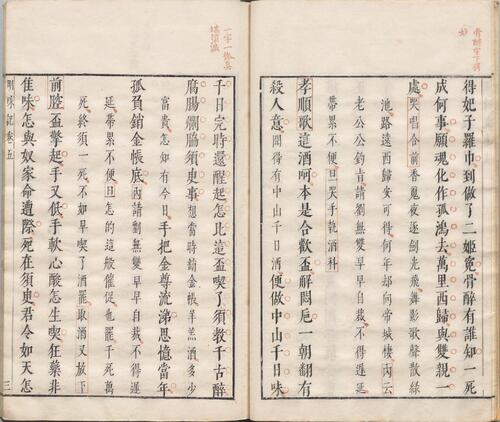 得妃子羅巾到做了二姬冤骨醉有誰知一死
成何事願魂化作孤鴻去萬里西歸與雙親一
處哭唱合前香魂夜逐劍光飛舞影歌聲散綠
池路遠西歸安可得何年却向帝城棲內云
老公公鈞旨請劉無雙早早自裁不得遲延
帶累不便旦哭手執酒科
孝順歌這酒呵本是合歡盃解悶卮一朝翻有
殺人意聞得有中山千日酒便做中山千日味
千日完時還醒起怎比這盃喫了須教千古醉
腐腸爛脇須臾事想當時銷金帳羊羔酒多少
富貴怎知有今日手把金尊流涕思憶當年
孤負銷金帳底內請劉無雙早早自裁不得遲
延帶累不便旦怎的這般催促也罷千死萬
死終須一死不如早喫了酒罷取酒又放下
前腔盃擎起手又低手軟心酸怎生喫狂藥非
佳味怎與奴家命遭際死在須臾君令如天怎
明珠記卷五
三